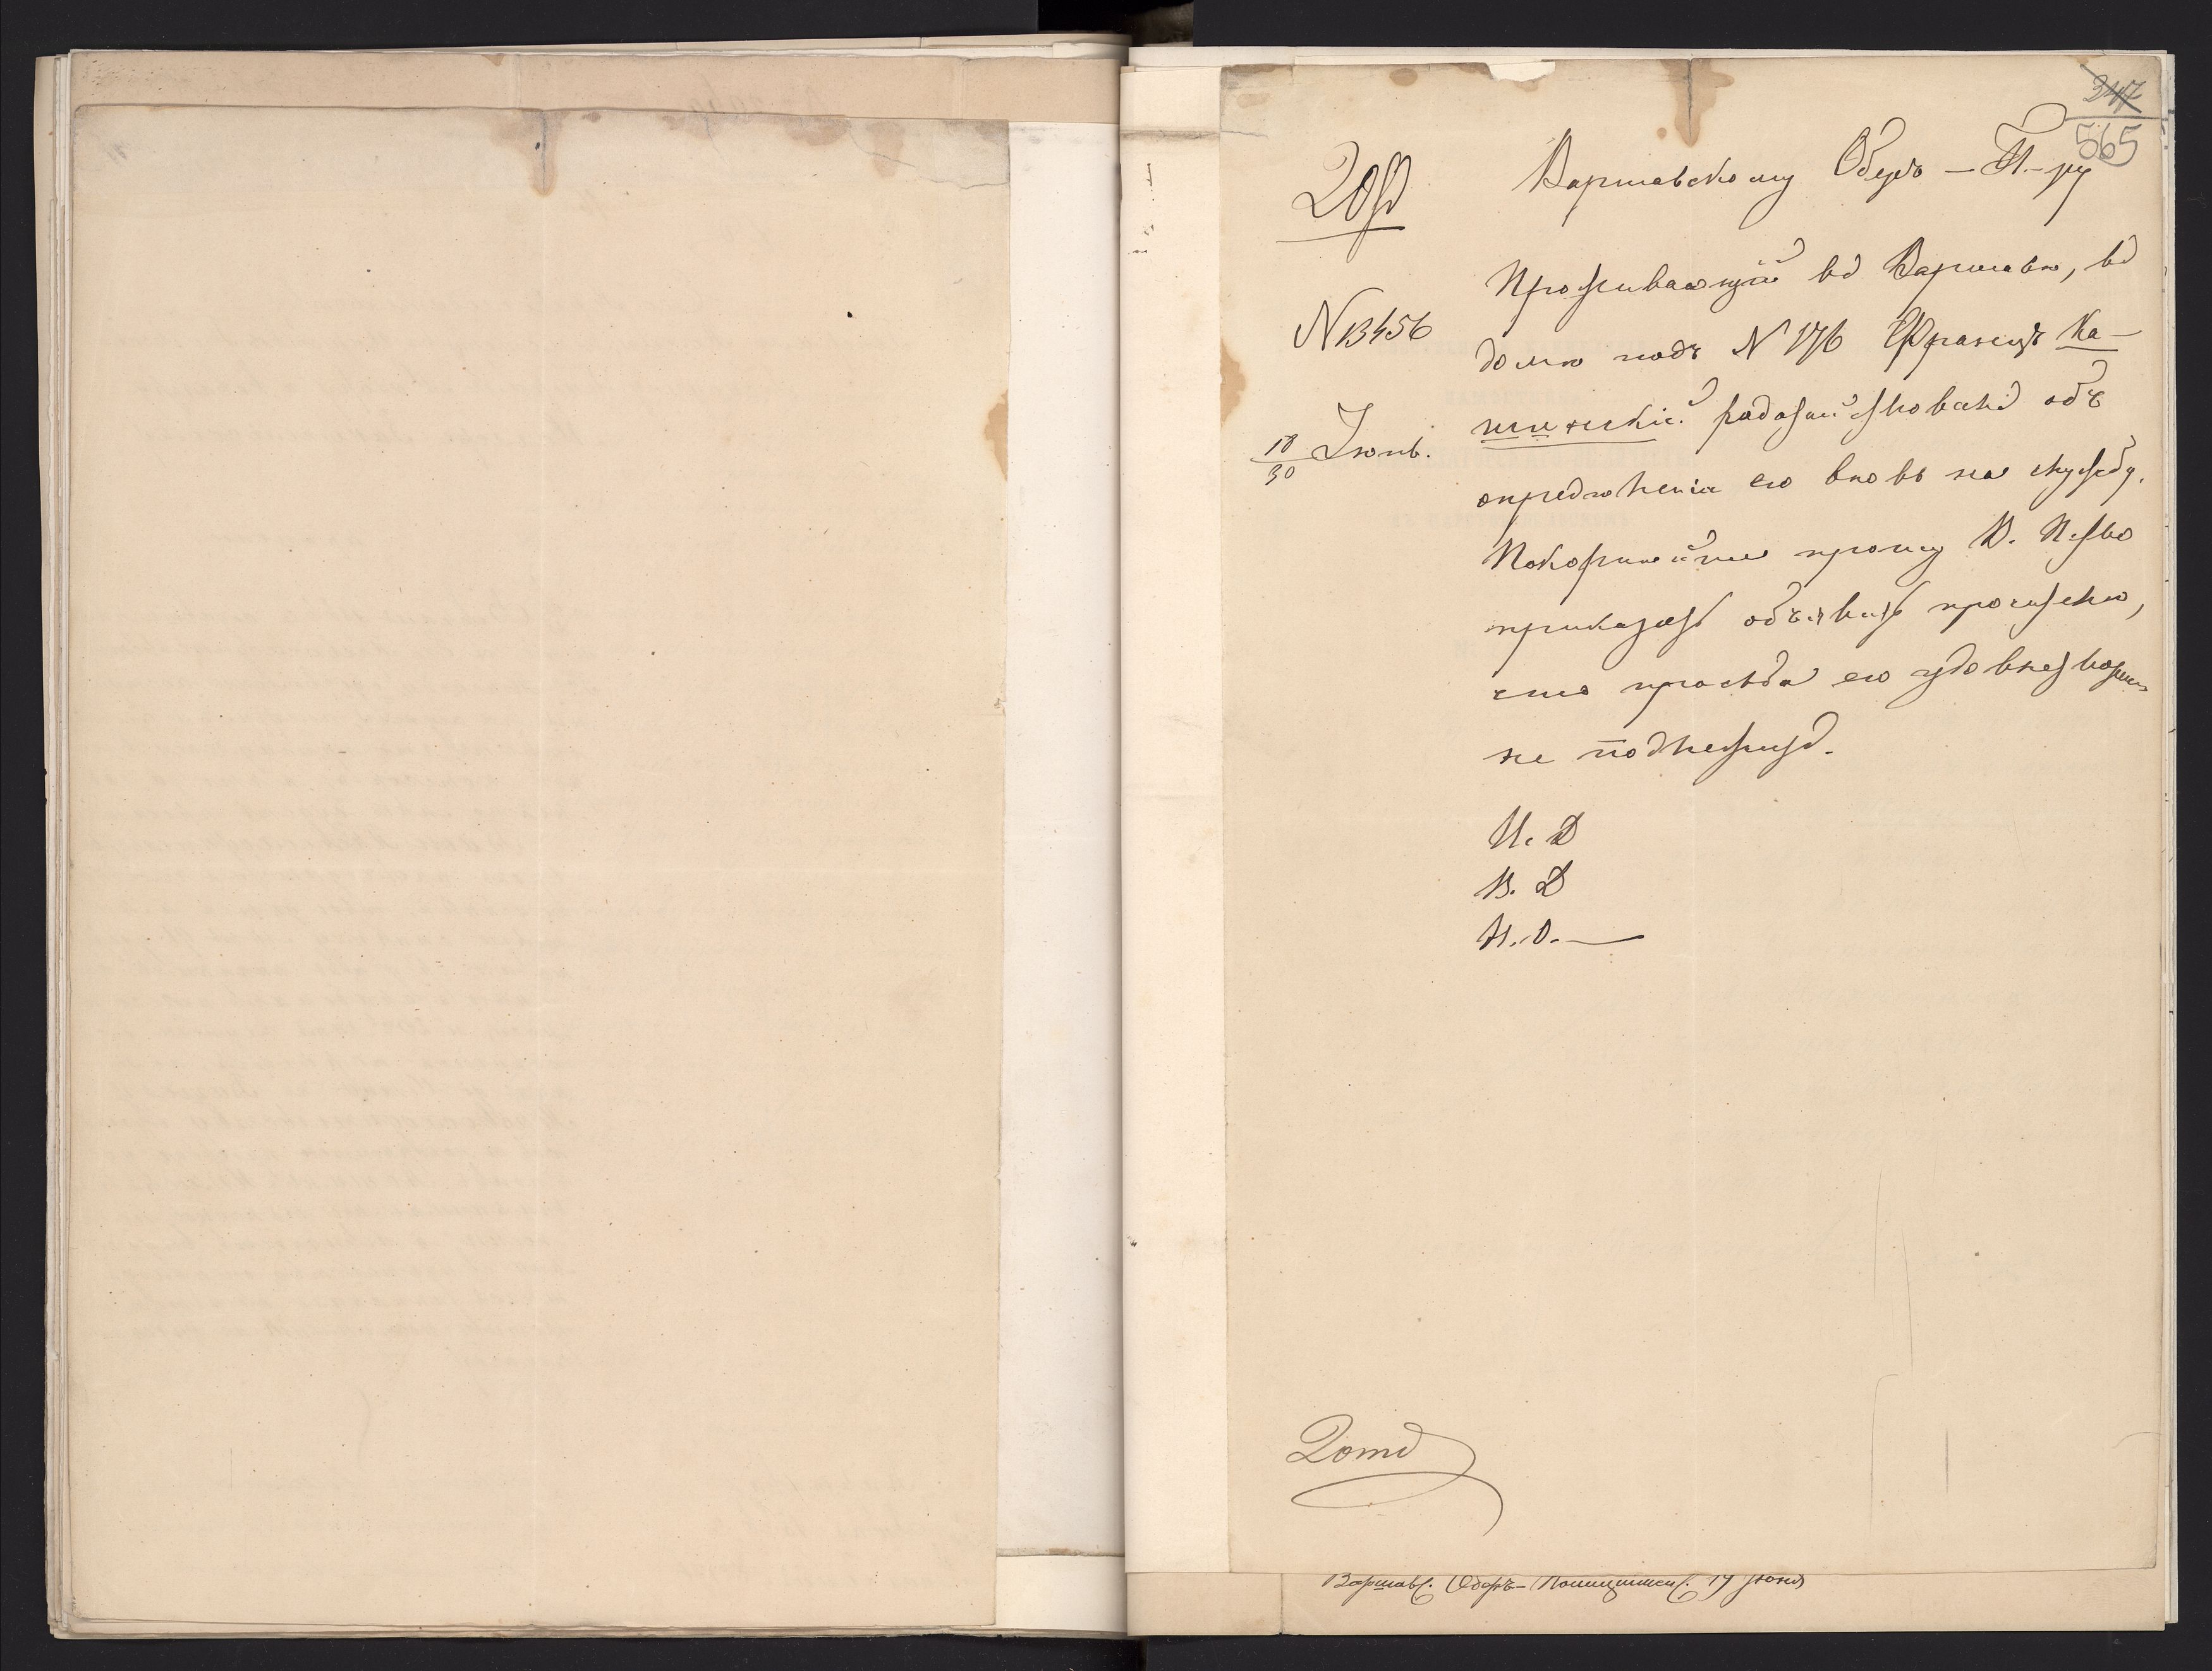 247
565
Варшавскому Оберъ-П-ру
№ 13456
18/30 Іюнь.
Проживающій въ Варшавѣ, въ
домѣ подъ № 176 Францъ Ка-
шинскій ходатайствовалъ объ
опредѣленіи его вновь на службу.
Покорнѣйше прошу В. П-ство
приказать объявить просителю,
что просьба его удовлетворенію
не подлежитъ.
И. Д
В. Д
Н. О.—
Варшавс. Оберъ-Полицмейс. 17 Іюня